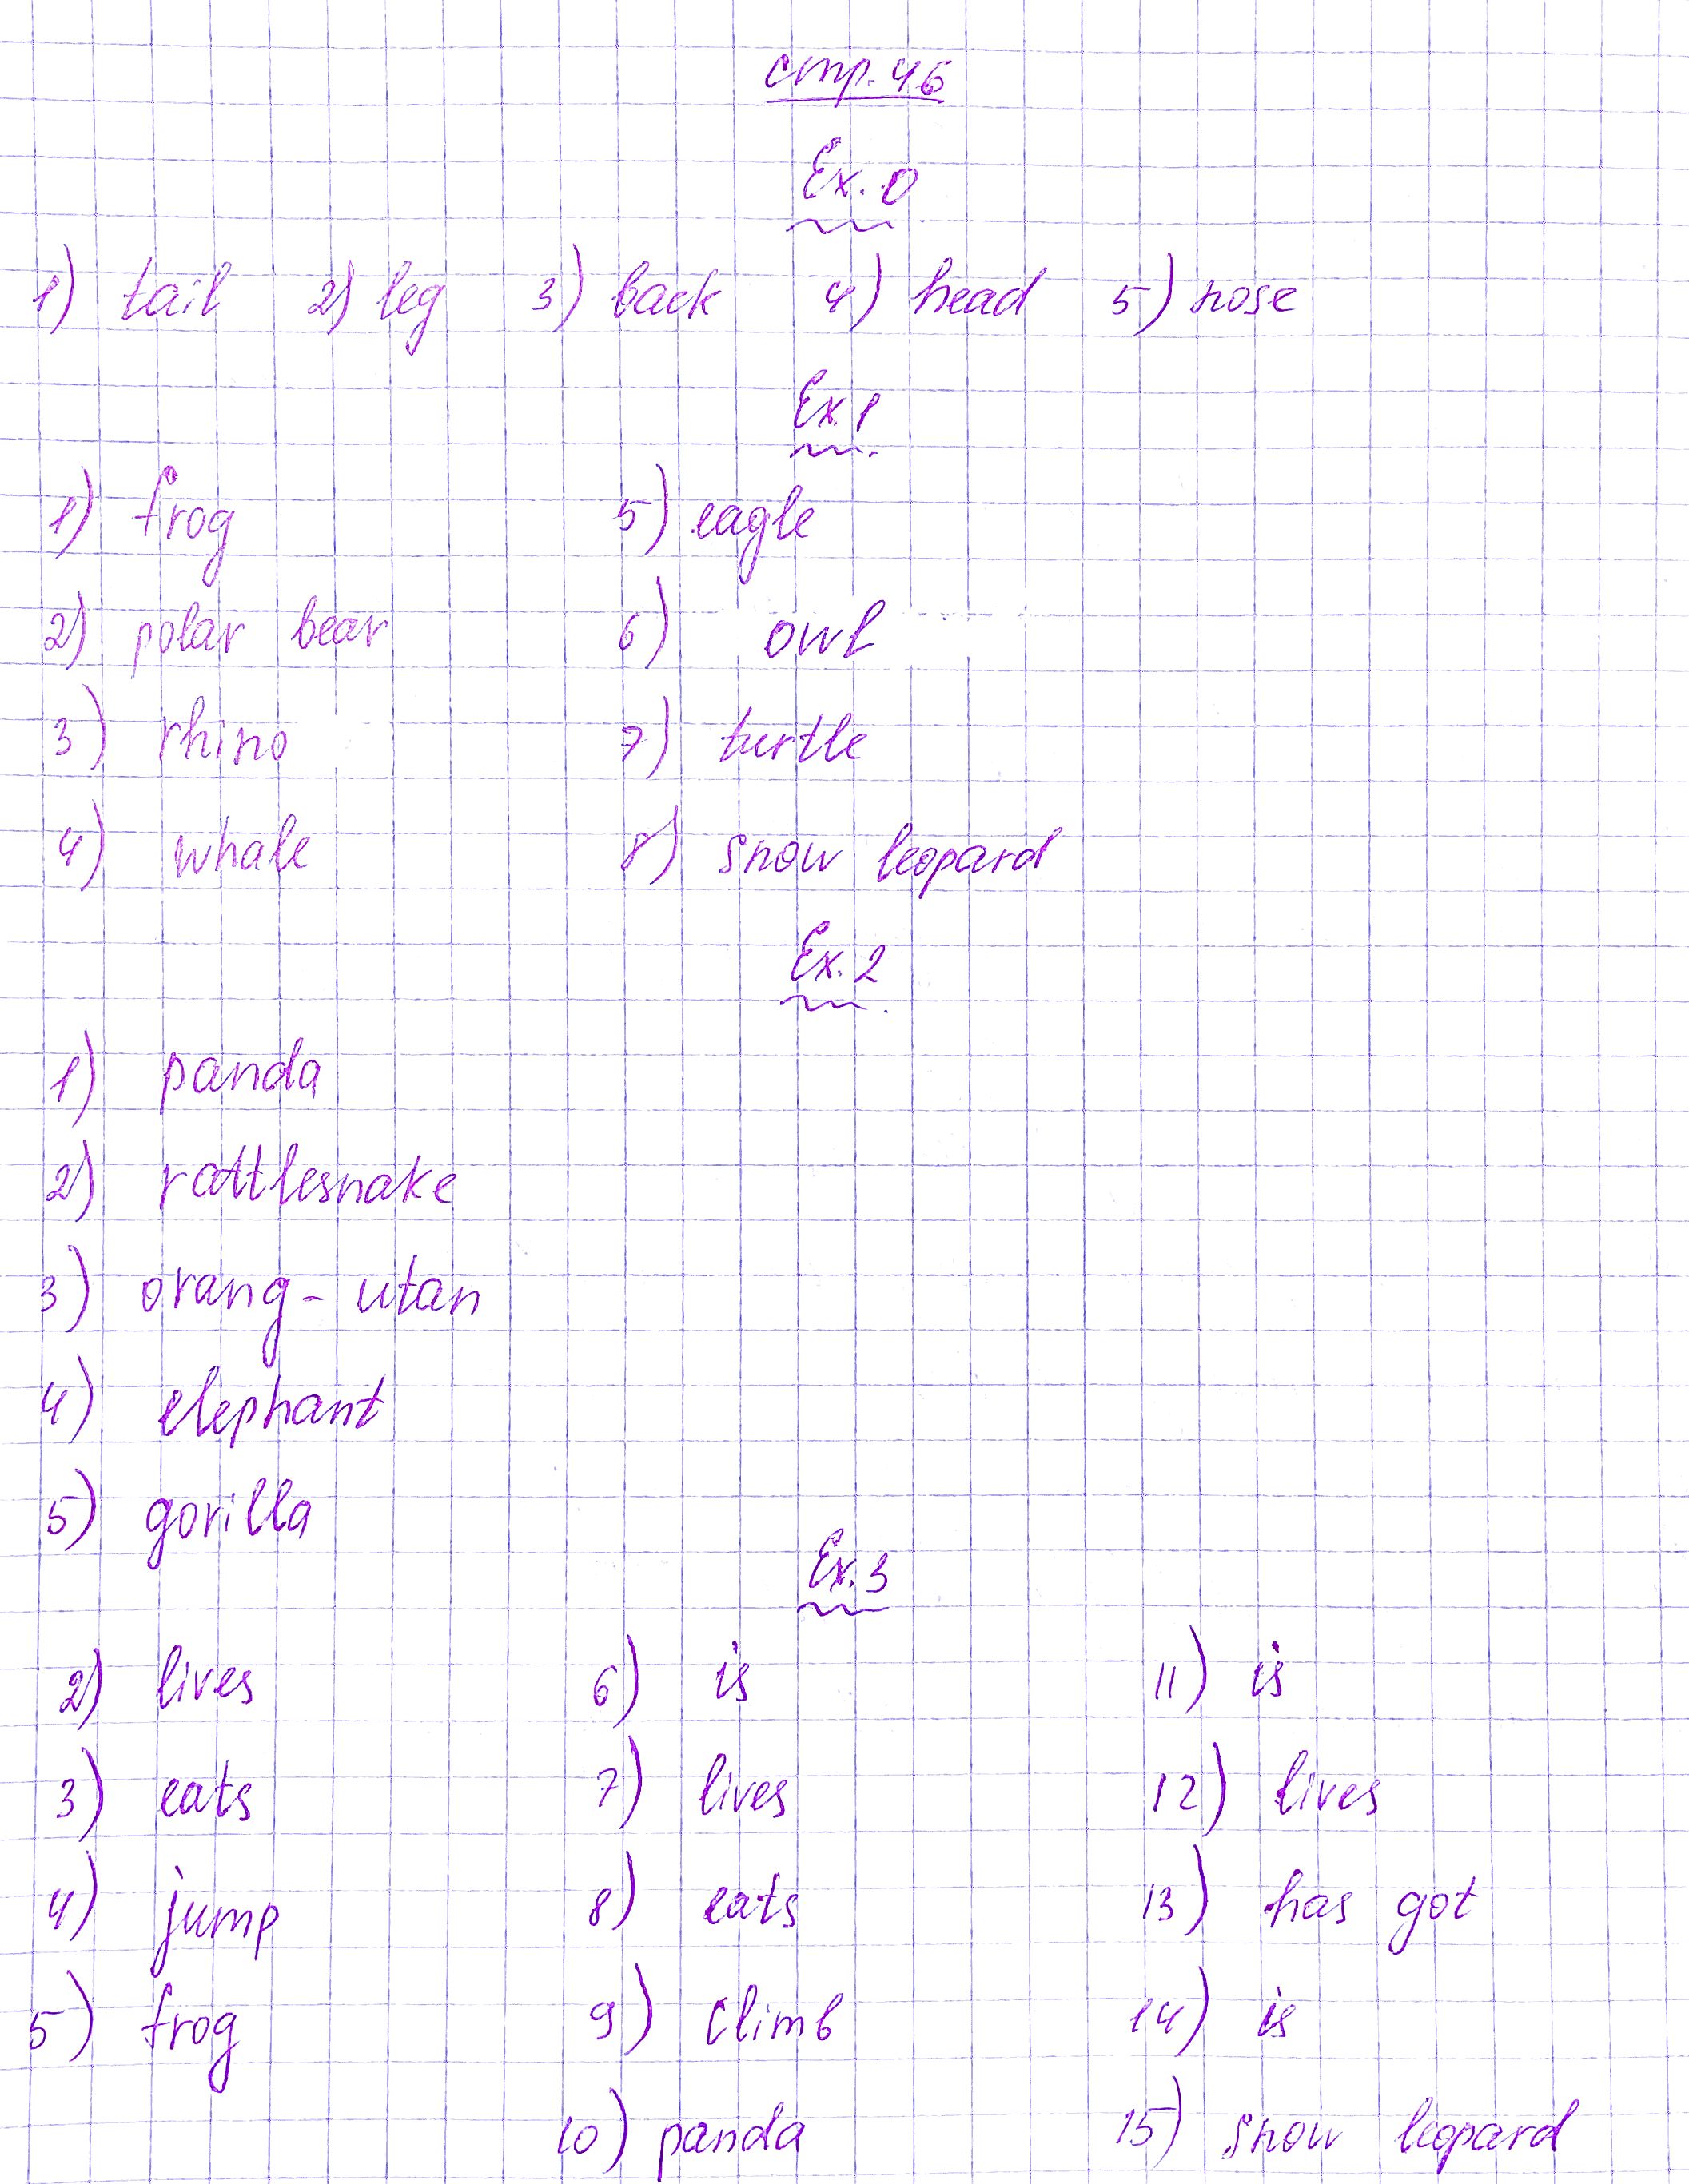 стр. 46
Ex. 0
1) tail 2) leg 3) back 4) head 5) nose
Ex. 1
1) frog 5) eagle
2) polar bear 6) owl
3) rhino 7) turtle
4) whale 8) snow leopard
Ex. 2
1) panda
2) rattlesnake
3) orang-utan
4) elephant
5) gorilla
Ex. 3
2) lives 6) is 11) is
3) eats 7) lives 12) lives
4) jump 8) eats 13) has got
5) frog 9) climb 14) is
10) panda 15) snow leopard